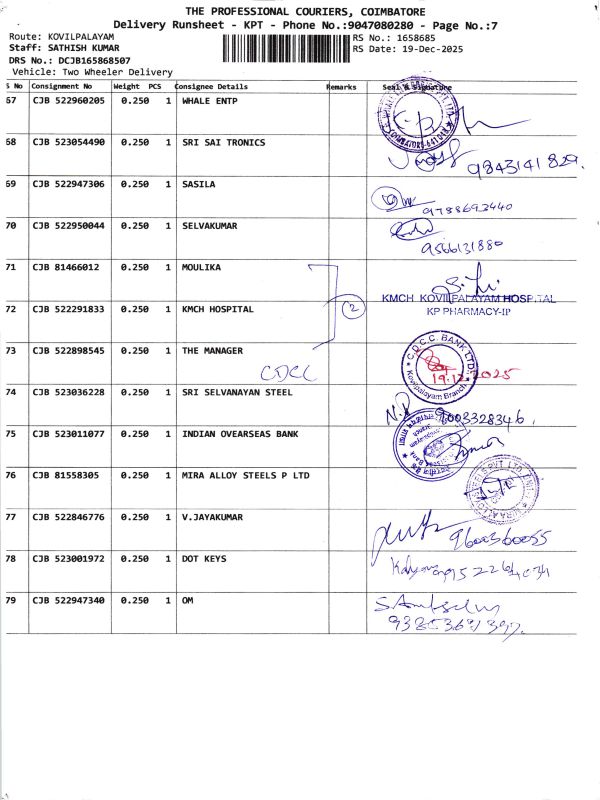 THE PROFESSIONAL COURIERS, COIMBATORE
Delivery Runsheet - KPT - Phone No.:9047080280 - Page No.:7
Route: KOVILPALAYAM RS No.: 1658685
Staff: SATHISH KUMAR RS Date: 19-Dec-2025
DRS No.: DCJB165868507
Vehicle: Two Wheeler Delivery
S No Consignment No Weight PCS Consignee Details Remarks Seal & Signature
67 CJB 522960205 0.250 1 WHALE ENTP
68 CJB 523054490 0.250 1 SRI SAI TRONICS
9843141829.
69 CJB 522947306 0.250 1 SASILA
9788693440
70 CJB 522950044 0.250 1 SELVAKUMAR
9566131880
71 CJB 81466012 0.250 1 MOULIKA
KMCH KOVILPALAYAM HOSPITAL
72 CJB 522291833 0.250 1 KMCH HOSPITAL 2 KP PHARMACY-IP
73 CJB 522898545 0.250 1 THE MANAGER
C.D.C.C. BANK LTD.
Kovilpalayam Branch
CDCC
19.12.2025
74 CJB 523036228 0.250 1 SRI SELVANAYAN STEEL
9003328346.
75 CJB 523011077 0.250 1 INDIAN OVEARSEAS BANK
76 CJB 81558305 0.250 1 MIRA ALLOY STEELS P LTD
77 CJB 522846776 0.250 1 V.JAYAKUMAR
9600360055
78 CJB 523001972 0.250 1 DOT KEYS
79 CJB 522947340 0.250 1 OM